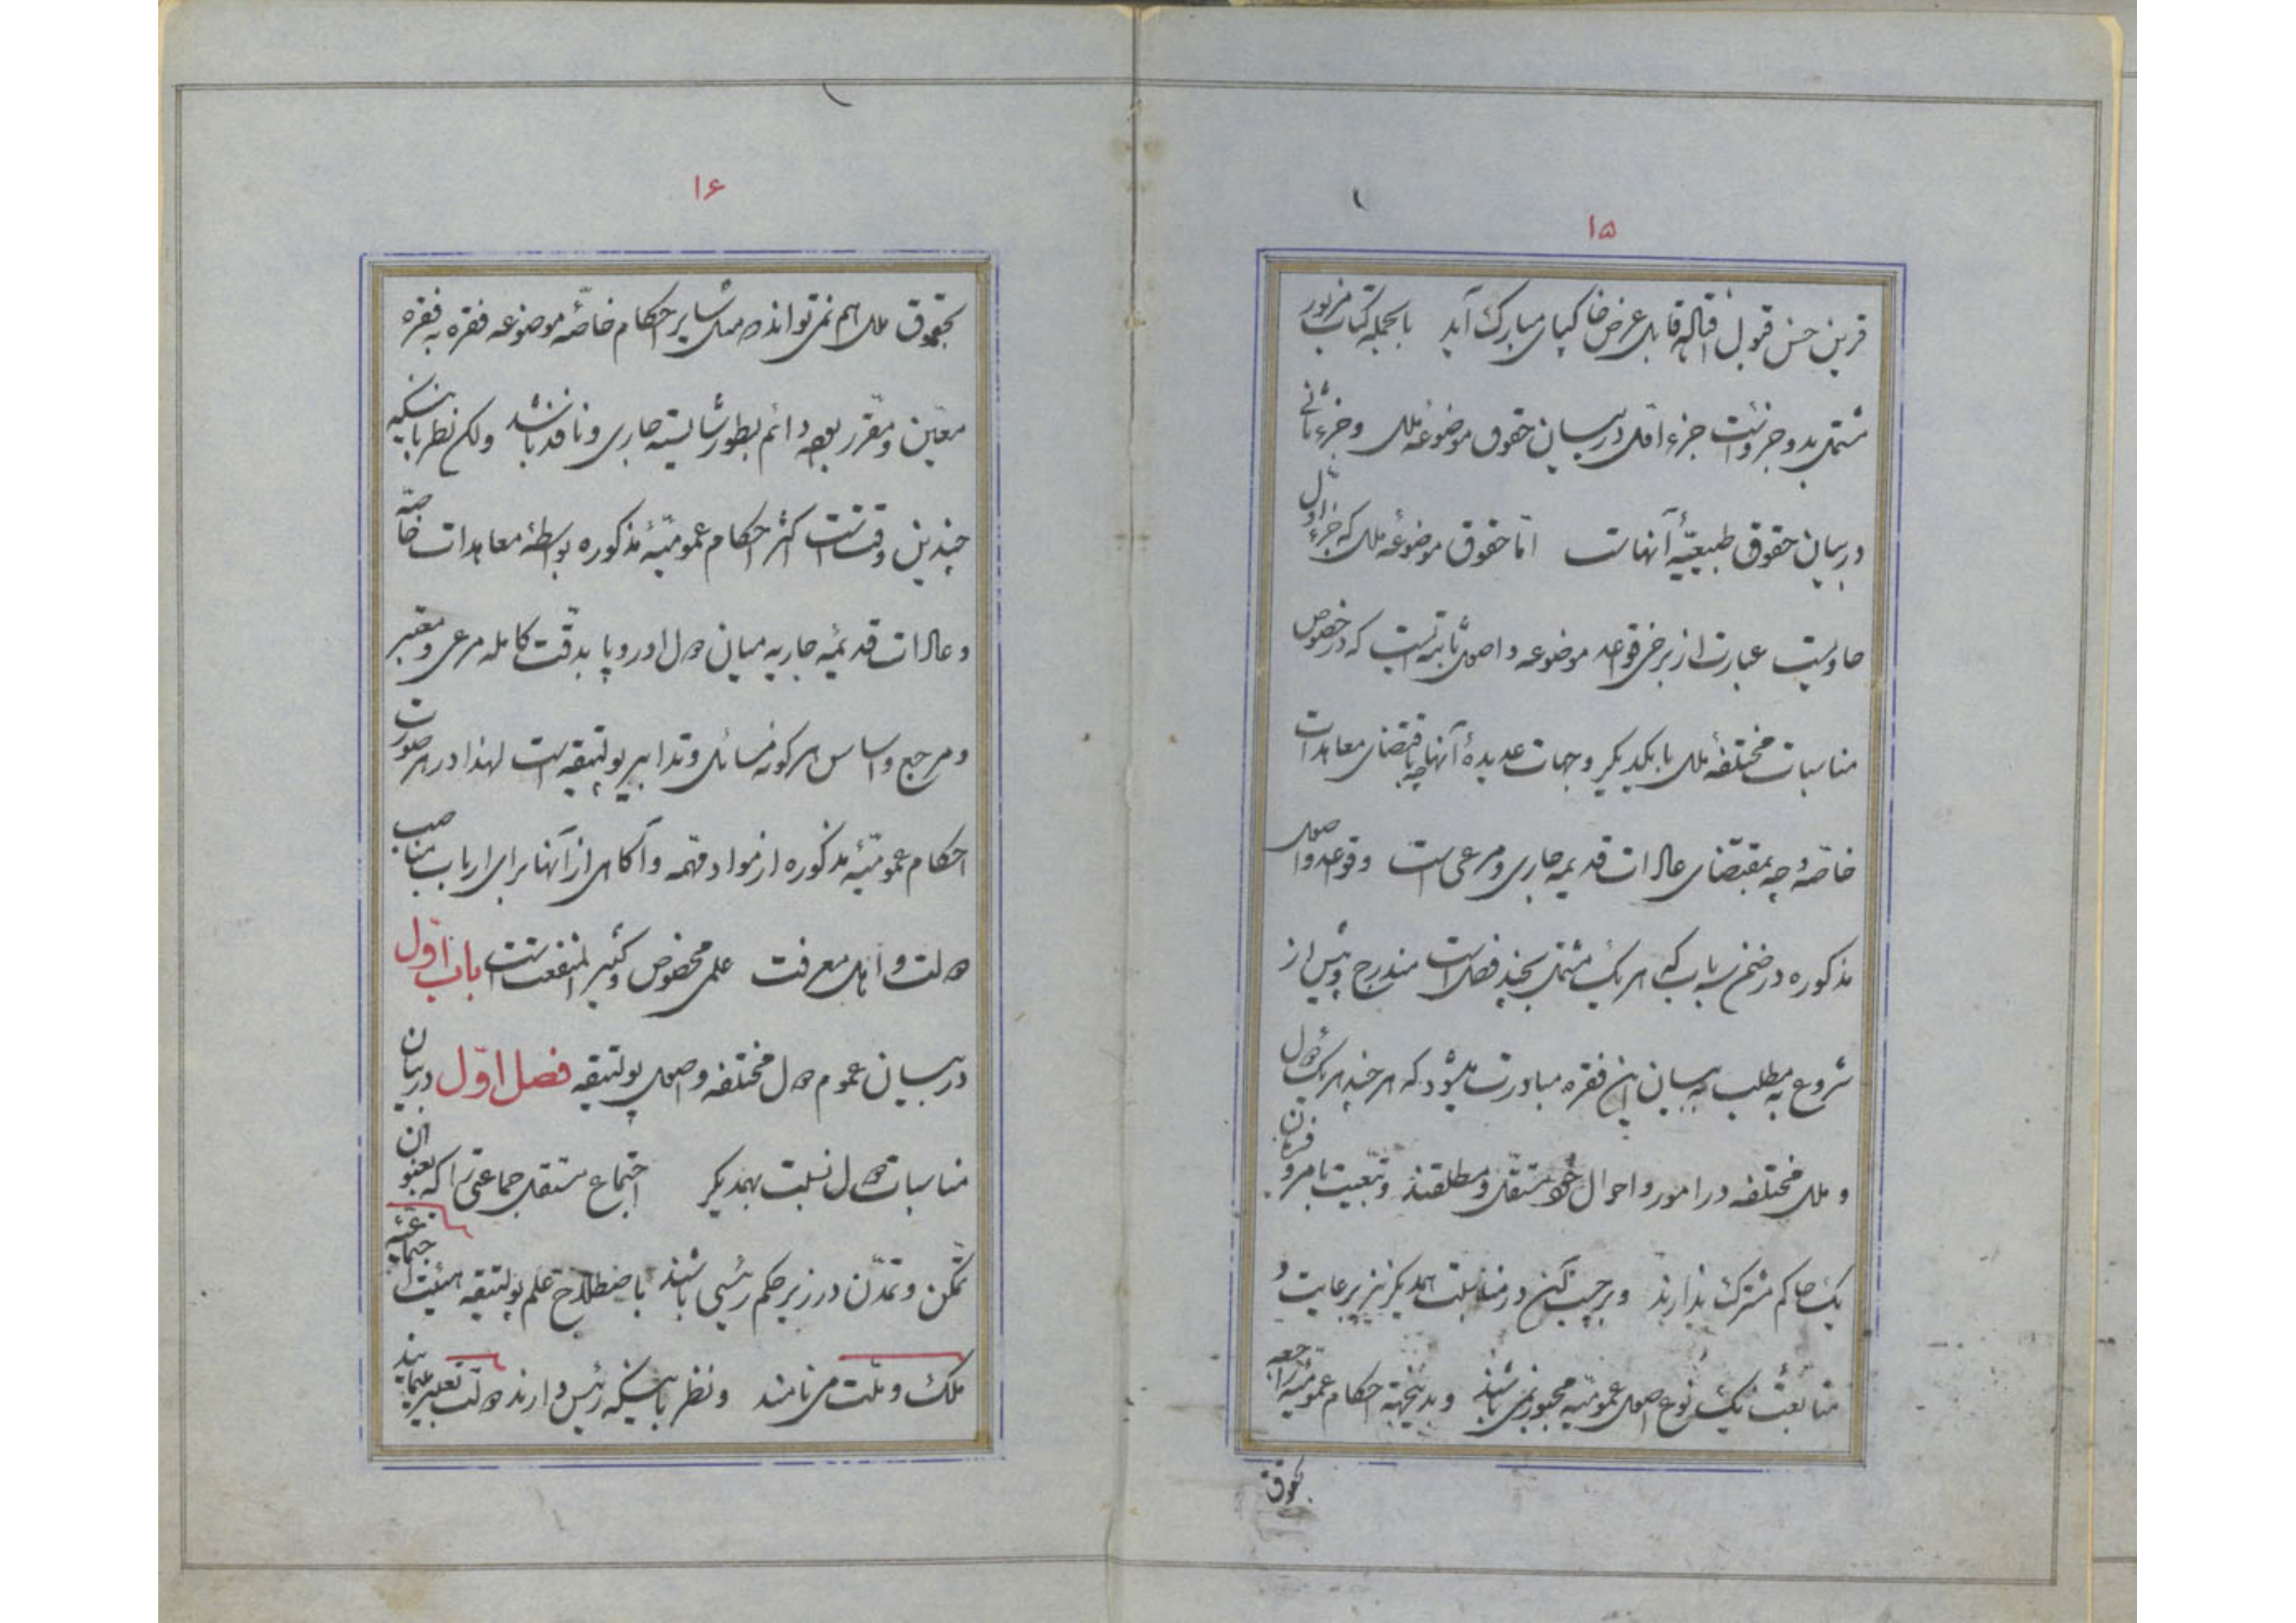 ۱۵
قرین حسن قبول افتاله قابل عرض خاکپای مبارک آید بالجمله کتاب مزبور
مشتمل بدو جزوئست جزء اوّل در بیان حقوق موضوعهٔ ملل و جزء ثانی
در بیان حقوق طبیعیّهٔ آنهاست امّا حقوق موضوعهٔ ملل که جزء اوّل
حاویست عبارت از برخی قواعد موضوعه و اصول ثابته ایست که در خصوص
مناسبات مختلفهٔ ملل با یکدیگر و جهات عدیدهٔ آنها چه باقتضای معاهدات
خاصّه و چه بمقتضای عادات قدیمه جاری و مرعی است و قواعد و اصول
مذکوره در ضمن سه باب که هر یک مشتمل بچند فصل است مندرج و پیش از
شروع به مطلب به بیان این فقره مبادرت میشود که هر چند هر یک دول
و ملل مختلفه در امور و احوال خود مستقل و مطلقند و تبعیت بامر و فرمان
یک حاکم مشترک ندارند و بر حسب تمکن در مناسبت همدیگر نیز برعایت و
متابعت یک نوع اصول عمومیّه مجبور نمی باشند و بدینجهة احکام عمومیّهٔ راجعه
بحقوق
۱۶
بحقوق ملل هم نمی تواند مثل سایر احکام خاصّهٔ موضوعه فقره به فقره
معیّن و مقرّر بوده دائم بطور شایسته جاری و نافذ باشد ولکن نظر باینکه
چندین وقت است اکثر احکام عمومیّهٔ مذکوره بواسطهٔ معاهدات خاصّه
و عادات قدیمهٔ جاریه میان دول اوروپا بدقّت کامله مرعی و معتبر
و مرجع و اساس هر گونه مسائل و تدابیر پولتیقیه است لهذا در هر صورت
احکام عمومیّهٔ مذکوره از مواد مهمّه و آگاهی از آنها برای ارباب مناصب
دولت و اهل معرفت علمی مخصوص و کثیر المنفعت است باب اوّل
در بیان عموم دول مختلفه و اصول پولتیقه فصل اوّل در بیان
مناسبات دول نسبت بهمدیگر اجتماع مستقل جماعتی را که بعنوان
تمکّن و تمدّن در زیر حکم رئیسی باشند باصطلاح علم پولتیقه هیئت اجتماعیّهٔ
ملک و ملّت می نامند و نظر باینکه رئیس دارند دولت تعبیر مینمایند